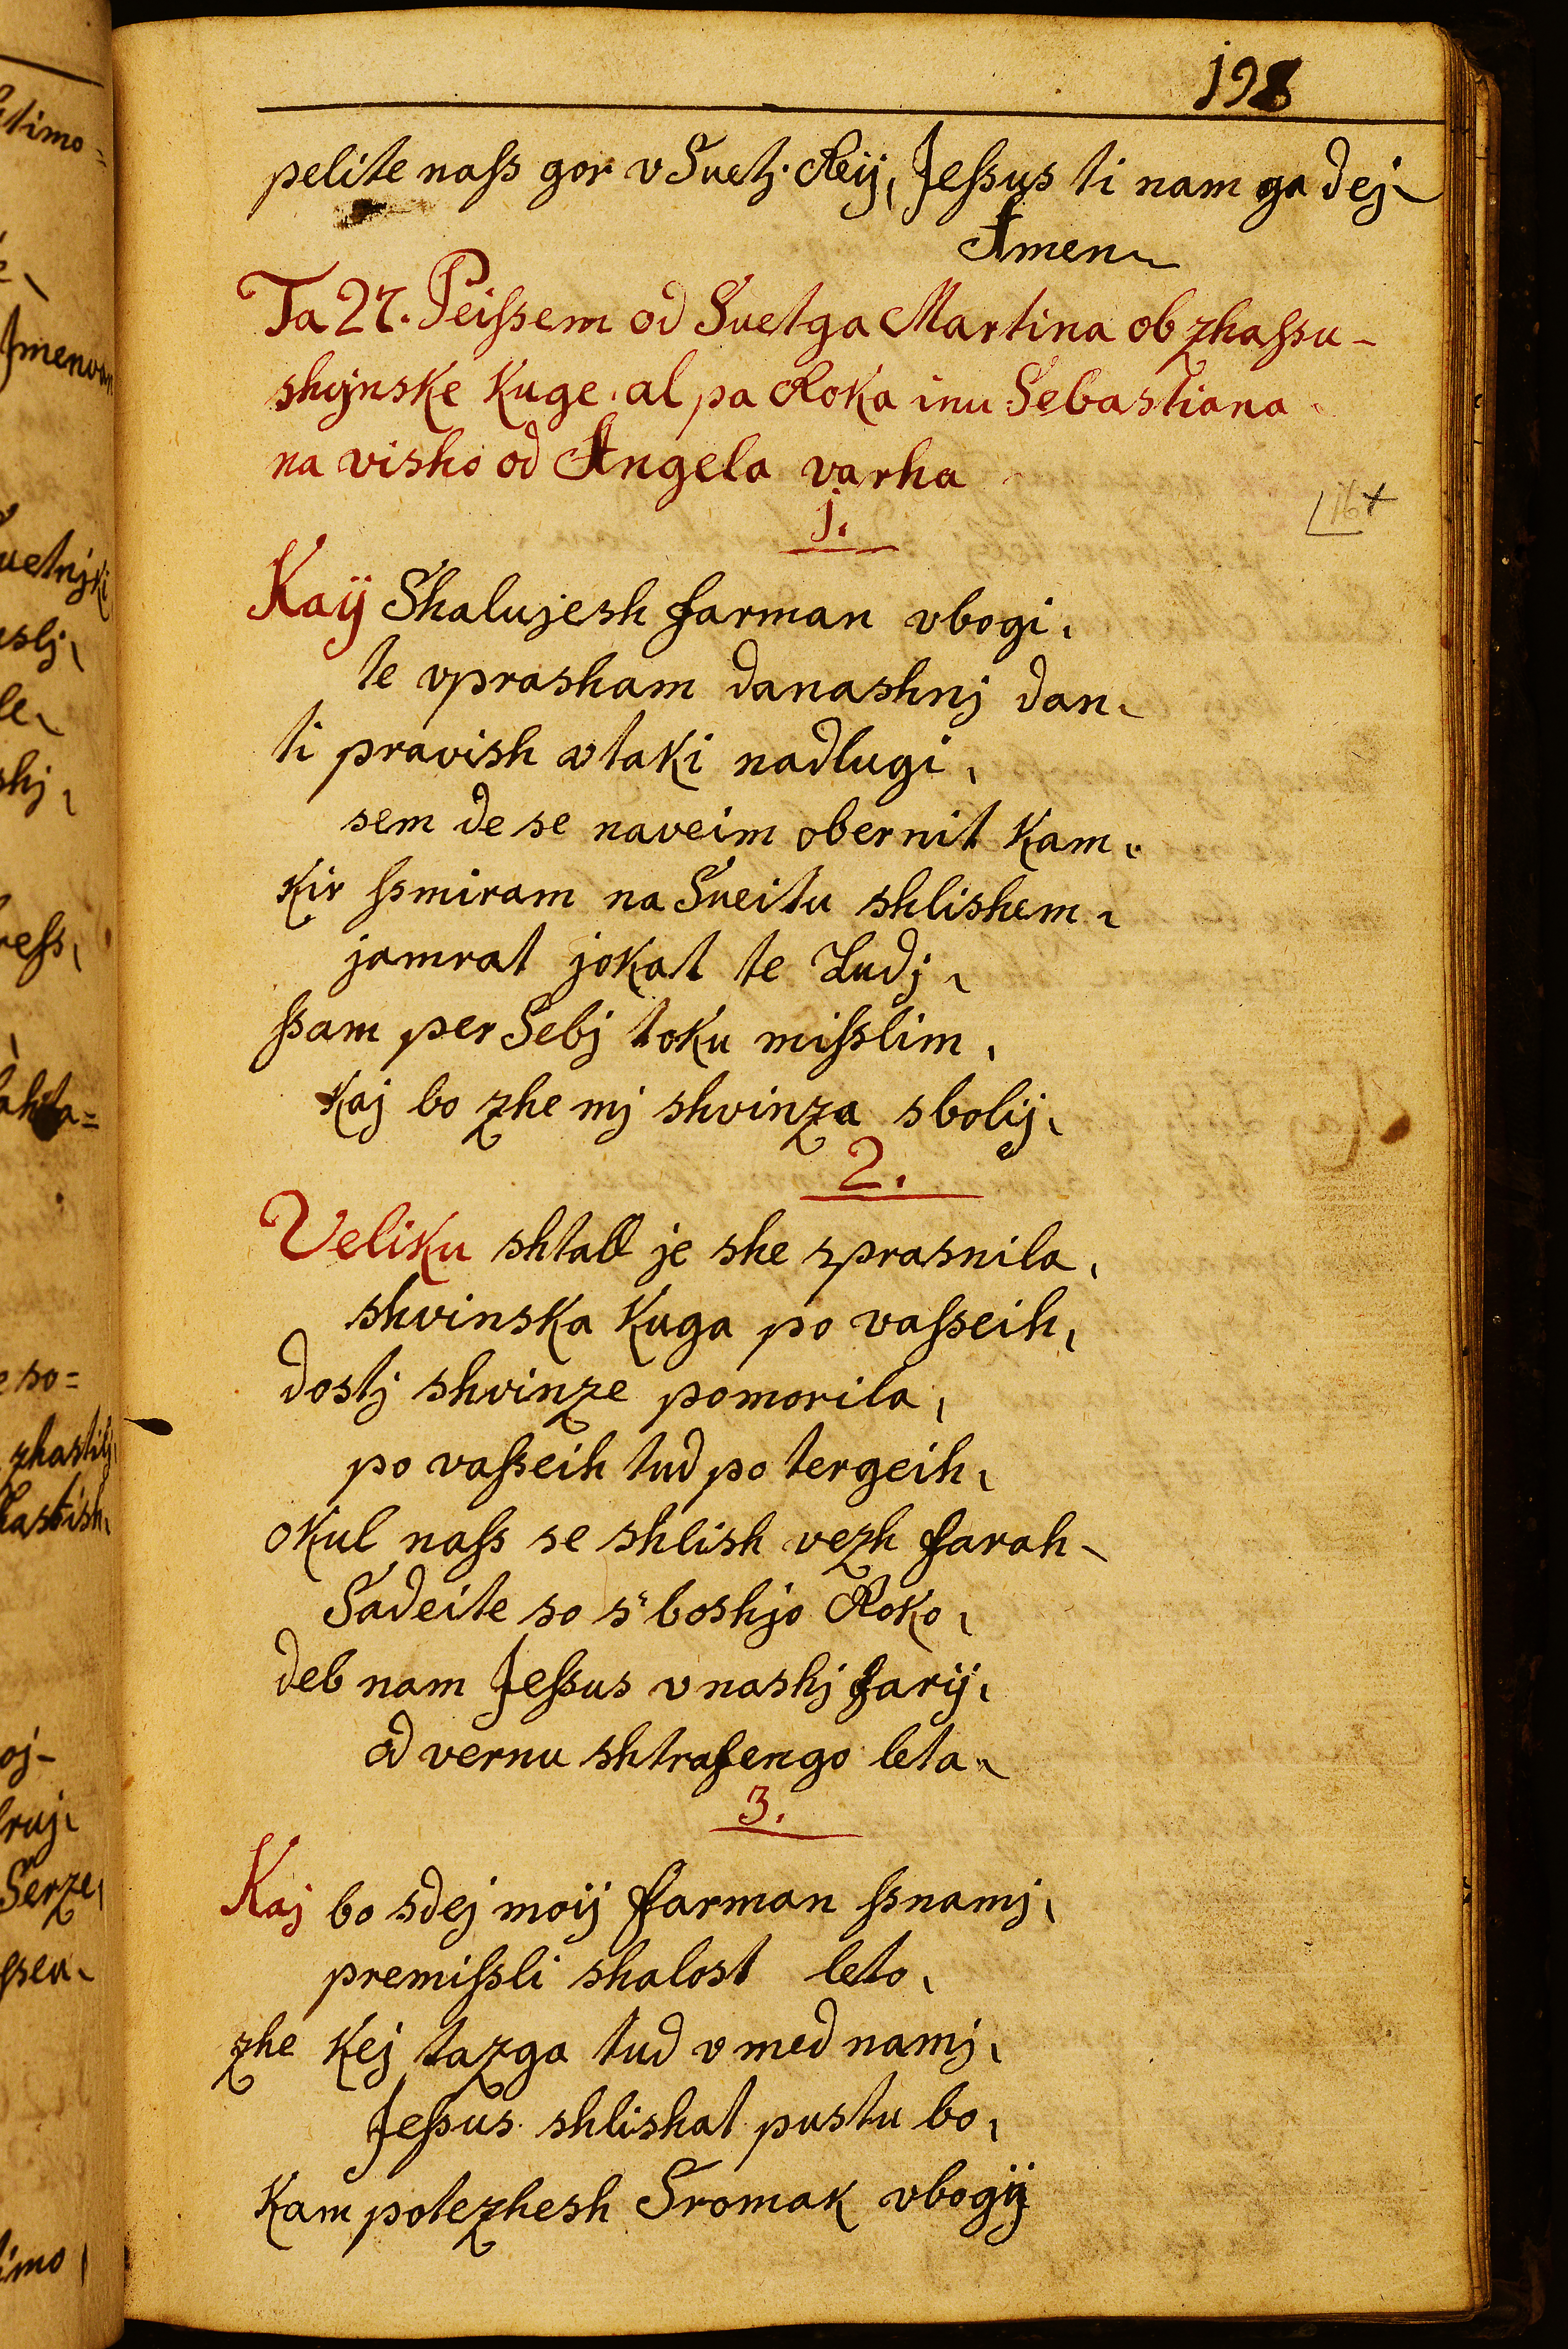 198
pelite naſs gor v Suetj Reij, Jeſsus ti nam ga dej
Amen
Ta 27. Peiſsem od Suetga Martina ob zhaſsu-
shvjnske Kuge, al pa Roka inu Sebastiana
na visho od Angela varha
16+
j.
Kaij Shalujesh farman vbogi,
te vprasham danashnj dan,
ti pravish vtaki nadlugi,
sem de se naveim obernit Kam,
Kir ſsmiram na Sveitu shlishem,
jamrat jokat te Ludj,
ſsam per Sebj toku miſslim,
Kaj bo zhe mj shvinza sbolij,
2.
Veliku shtall je she sprasnila,
shvinska Kuga po vaſseih,
dostj shvinze pomorila,
po vaſseih tud po tergeih,
okul naſs se shlish vezh farah
Sadeite so s'boshjo Roko,
deb nam Jeſsus v nashj farij,
od vernu shtrafengo leta,
3.
Kaj bo sdej moij farman ſsnamj,
premiſsli shalost leto,
zhe Kej tazga tud v med namj,
Jeſsus shlishat pustu bo,
Kam potezhesh Sromak vbogij